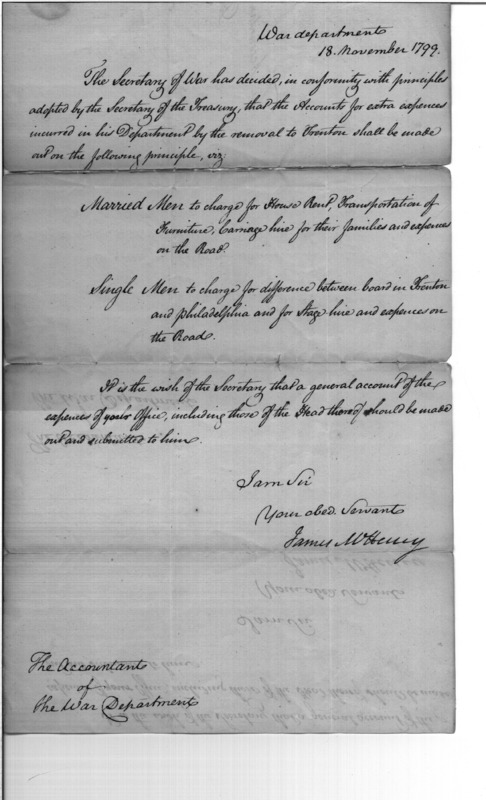 War department
18. November 1799.
The Secretary of War has decided, in conformity with principles
adopted by the Secretary of the Treasury, that the Accounts for extra expences
incurred in his Department by the removal to Trenton shall be made
out on the following principle, viz:
Married Men to charge for House Rent, Transportation of
Furniture, Carriage hire for their families and expences
on the Road.
Single Men to charge for difference between board in Trenton
and Philadelphia and for Stage hire and expences on
the Road.
It is the wish of the Secretary that a general account of the
expences of your Office, including those of the Head thereof should be made
out and submitted to him.
I am Sir
Your obed. Servant
James McHenry
The Accountant
of
the War Department